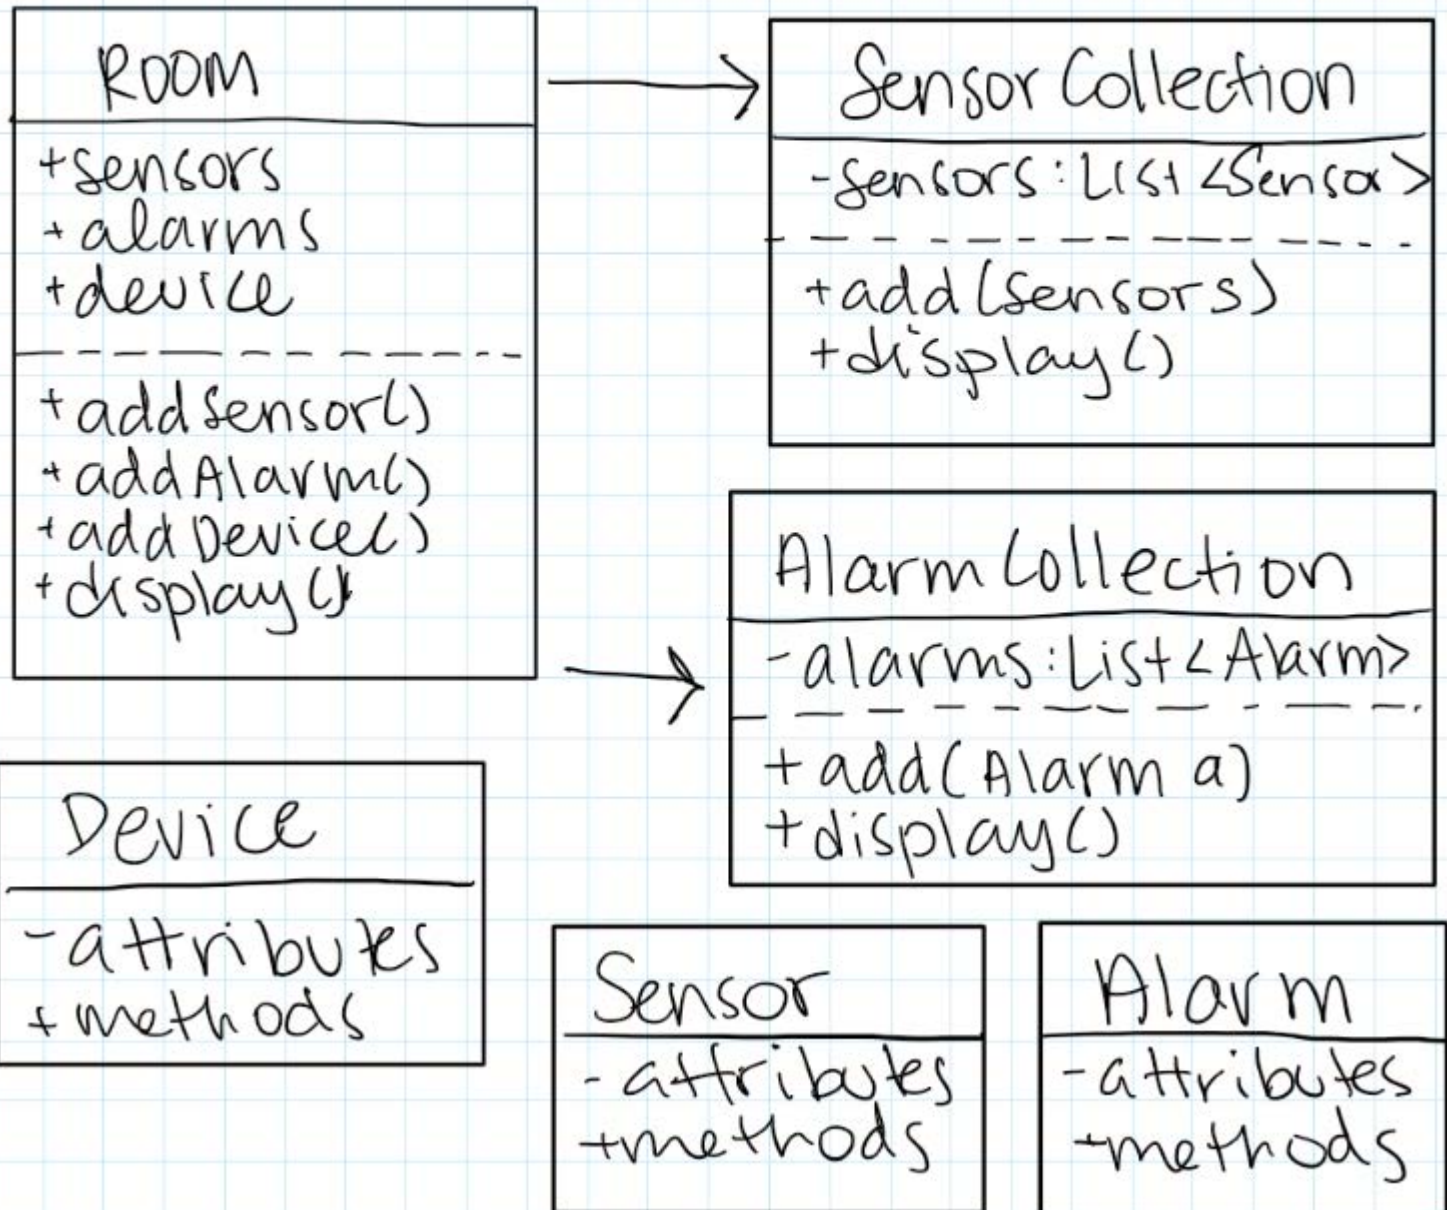 ROOM
+sensors
+alarms
+device
+addSensor()
+addAlarm()
+addDevice()
+display()
Sensor Collection
-sensors:List<Sensor>
+add(Sensors)
+display()
Alarm Collection
-alarms:List<Alarm>
+add(Alarm a)
+display()
Device
-attributes
+methods
Sensor
-attributes
+methods
Alarm
-attributes
+methods